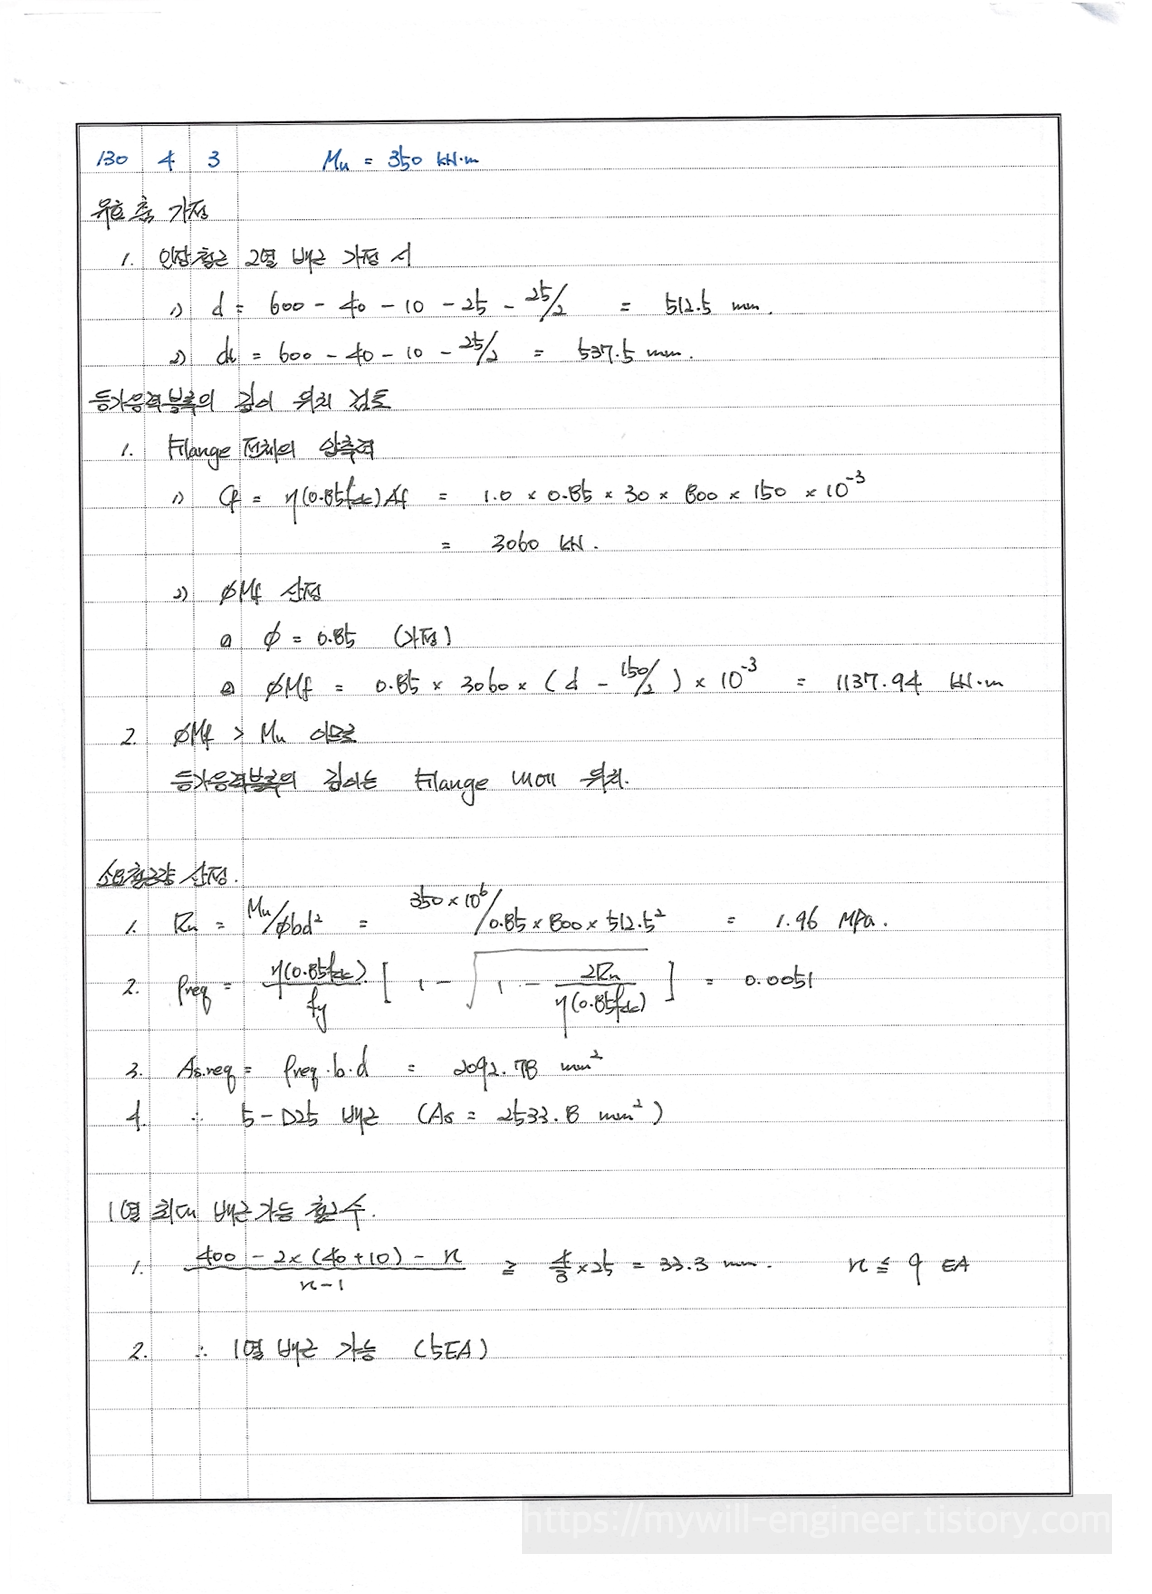 130 4 3 Mu = 350 kN·m
유효춤 가정
1. 인장철근 2열 배근 가정 시
1) d = 600 - 40 - 10 - 25 - 25/2 = 512.5 mm.
2) dt = 600 - 40 - 10 - 25/2 = 537.5 mm.
등가응력블록의 깊이 위치 검토
1. Flange 전체의 압축력
1) Cf = η(0.85fck)Af = 1.0 × 0.85 × 30 × 800 × 150 × 10⁻³
= 3060 kN.
2) øMf 산정
ø = 0.85 (가정)
øMf = 0.85 × 3060 × (d - 150/2) × 10⁻³ = 1137.94 kN·m
2. øMf > Mu 이므로
등가응력블록의 깊이는 Flange 내에 위치.
소요철근량 산정.
1. Rn = Mu/øbd² = 350×10⁶/0.85×800×512.5² = 1.96 MPa.
2. ρreq = η(0.85fck)/fy [1 - √(1 - 2Rn/η(0.85fck))] = 0.0051
3. As.req = ρreq·b·d = 2092.78 mm²
4. ∴ 5-D25 배근 (As = 2533.8 mm²)
1열 최대 배근가능 철근수.
1. (400 - 2×(40+10) - n)/(n-1) ≧ 4/3×25 = 33.3 mm. n ≦ 9 EA
2. ∴ 1열 배근 가능 (5EA)
https://mywill-engineer.tistory.com